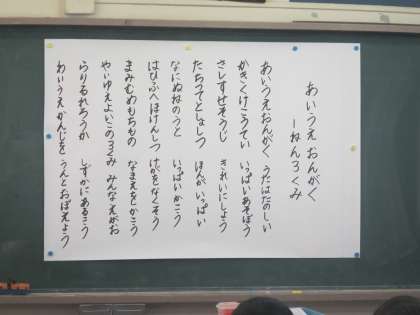 あいうえ おんがく
一ねん3くみ
あいうえおんがく うたはたのしい
かきくけこうてい いっぱいあそぼう
さしすせそうじ きれいにしよう
たちつてとしょしつ ほんがいっぱい
なにぬねのうと いっぱいかこう
はひふへほけんしつ けがをなくそう
まみむめもちもの なまえをかこう
やいゆえよいこの3くみ みんなえがお
らりるれろうか しずかにあるこう
わいうえ かんじを うんとおぼえよう